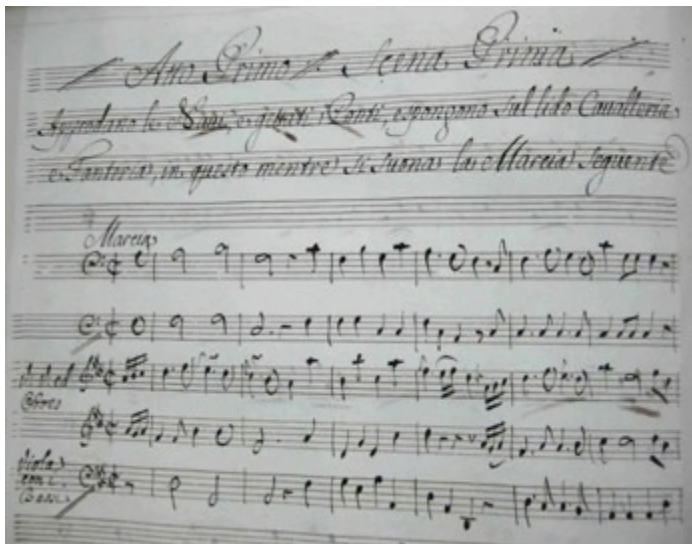 Atto Primo Scena Prima
Approdano le Navi, e gittati i Ponti, espongono sul lido Cavalleria
e Fanteria, in questo mentre si suona la Marcia seguente
Marcia
Viola
con i
Bassi